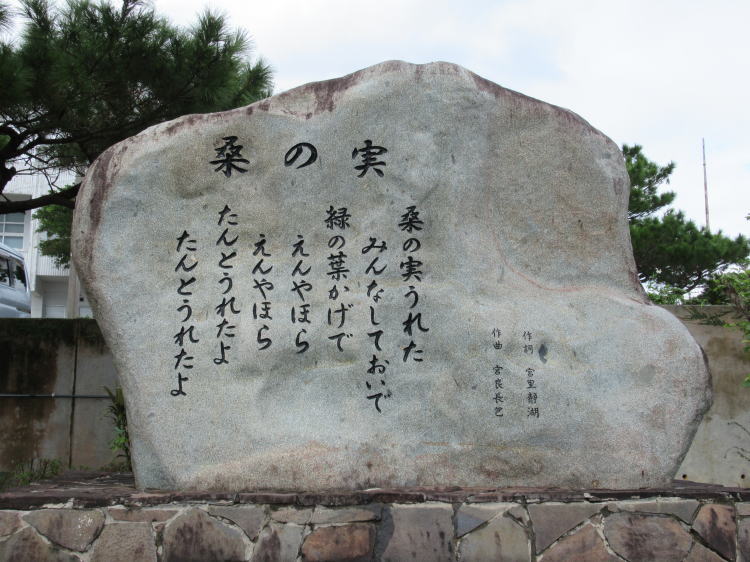 桑の実
作詞 宮里静湖
作曲 宮良長包
桑の実うれた
みんなしておいで
緑の葉かげで
えんやほら
えんやほら
たんとうれたよ
たんとうれたよ